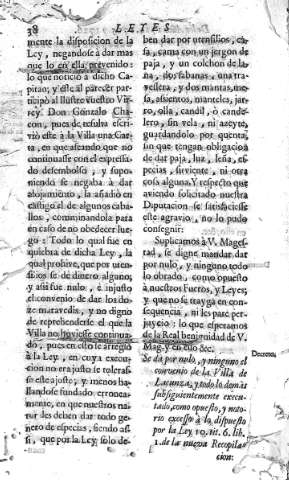 38 LEYES
mente la disposicion de la
Ley, negandose à dar mas
que lo en ella prevenido:
lo que noticiò à dicho Ca-
pitan, y este al parecer par-
ticipò al Ilustre vuestro Vir-
rey Don Gonzalo Cha-
con, pues de resulta escri-
viò este à la Villa una Car-
ta, en que afeando que no
continuasse con el expressa-
do desembolso, y supo-
niendo se negaba à dar
alojamiento, la añadiò en
castigo el de algunos caba-
llos, comminandola para
en caso de no obedecer lue-
go: Todo lo qual fue en
quiebra de dicha Ley, la
qual prohive, que por uten-
silios se dè dinero alguno,
y assi fue nulo, è injusto
el convenio de dar los do-
ze maravedis, y no digno
de reprehenderse el que la
Villa no huviesse continua-
do, pues en esto se arreglò
à la Ley, en cuya execu-
cion no era justo se toleras-
se este ajuste; y menos ha-
llandose fundado erronea-
mente, en que nuestros na-
turales deben dar todo ge-
nero de especias, siendo as-
si, que por la Ley, solo de-
ben dar por utensilios, ca-
sa, cama con un jergon de
paja, y un colchon de la-
na, dos sabanas, una tra-
vessera, y dos mantas, me-
sa, assientos, manteles, jar-
ro, olla, candil, ò cande-
lero, sin vela, ni azeyte,
guardandolo por quenta,
sin que tengan obligacion
de dar paja, luz, leña, es-
pecias, sirviente, ni otra
cosa alguna. Y respecto que
aviendo solicitado nuestra
Diputacion se satisfaciesse
este agravio, no lo pudo
conseguir:
Suplicamos à V. Mages-
tad, se digne mandar dar
por nulo, y ninguno todo
lo obrado, como opuesto
à nuestros Fueros, y Leyes;
y que no se trayga en con-
sequencia, ni les pare per-
juycio: lo que esperamos
de la Real benignidad de V.
Mag. y en ello &c.
Decreto.
Se dà por nulo, y ninguno el
convenio de la Villa de
Lacunza, y todo lo demàs
subsiguientemente execu-
tado, como opuesto, y noto-
rio excesso à lo dispuesto
por la Ley 10. tit. 6. lib.
1. de la nueva Recopila-
cion: